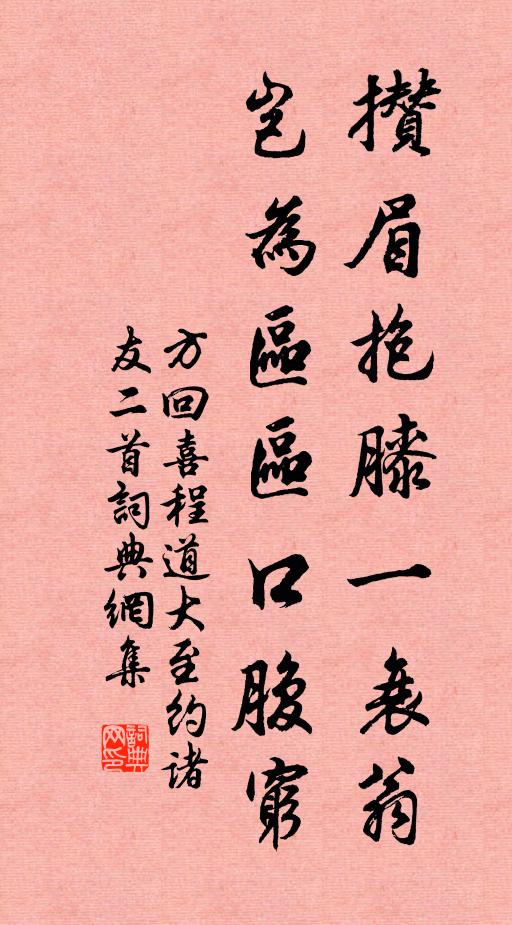 攅眉抱膝一衰翁
豈為區區口腹窮
方回喜程道大至約諸
友二首詞典網集
詞典网印